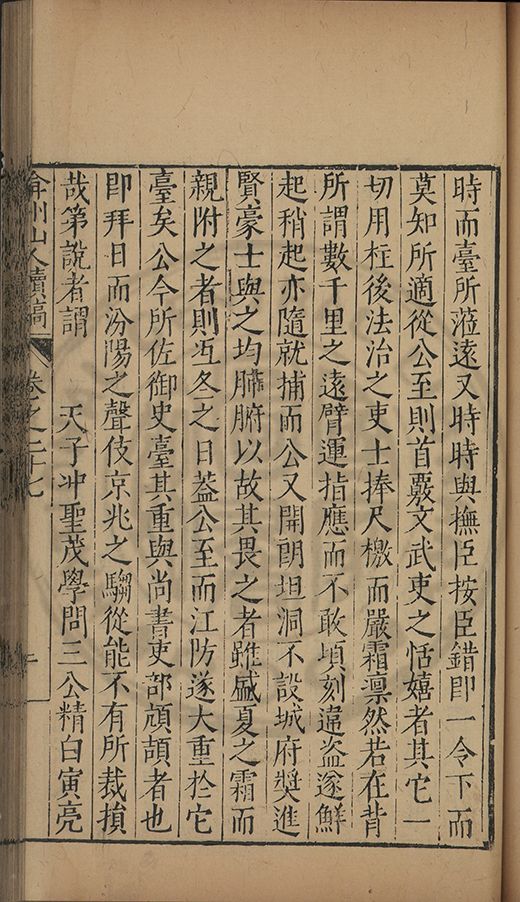 時而臺所蒞遠又時時與撫臣按臣錯卽一令下而
莫知所適從公至則首覈文武吏之恬嬉者其它一
切用柱後法治之吏士捧尺檄而嚴霜凛然若在背
所謂數千里之遠臂運指應而不敢頃刻違盗遂鮮
起稍起亦隨就捕而公又開朗坦洞不設城府奬進
賢豪士與之均肺腑以故其畏之者雖盛夏之霜而
親附之者則冱冬之日葢公至而江防遂大重於它
臺矣公今所佐御史臺其重與尚書吏部頏頡者也
卽拜日而汾陽之聲伎京兆之騶從能不有所裁損
哉第說者謂　天子冲聖茂學問三公精白寅亮
弇州山人續稿 卷之二十七